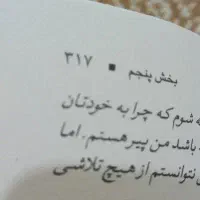 بخش پنجم ■ ۳۱۷
شوم که چرا به خودتان
باشد من پیر هستم. اما
نتوانستم از هیچ تلاشی